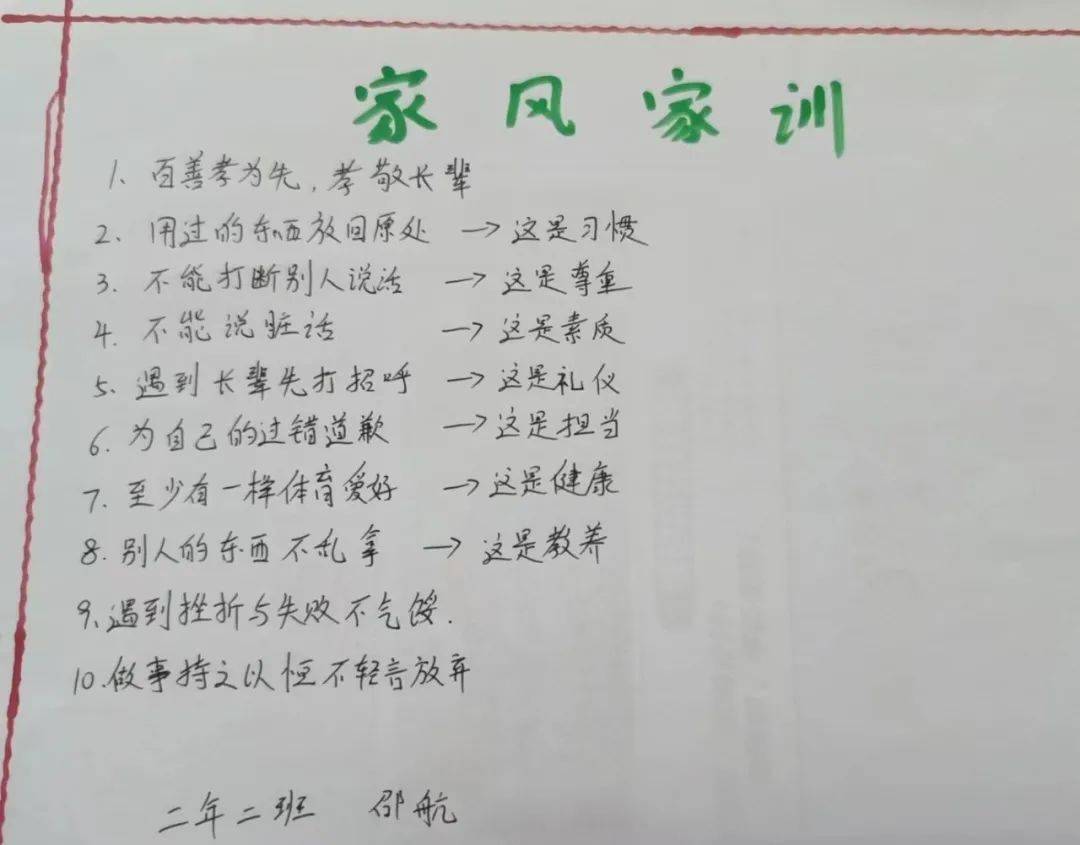 家风家训
1、百善孝为先,孝敬长辈
2、用过的东西放回原处 → 这是习惯
3、不能打断别人说话 → 这是尊重
4、不能说脏话 → 这是素质
5、遇到长辈先打招呼 → 这是礼仪
6、为自己的过错道歉 → 这是担当
7、至少有一样体育爱好 → 这是健康
8、别人的东西不乱拿 → 这是教养
9、遇到挫折与失败不气馁.
10.做事持之以恒不轻言放弃
二年二班 邵航